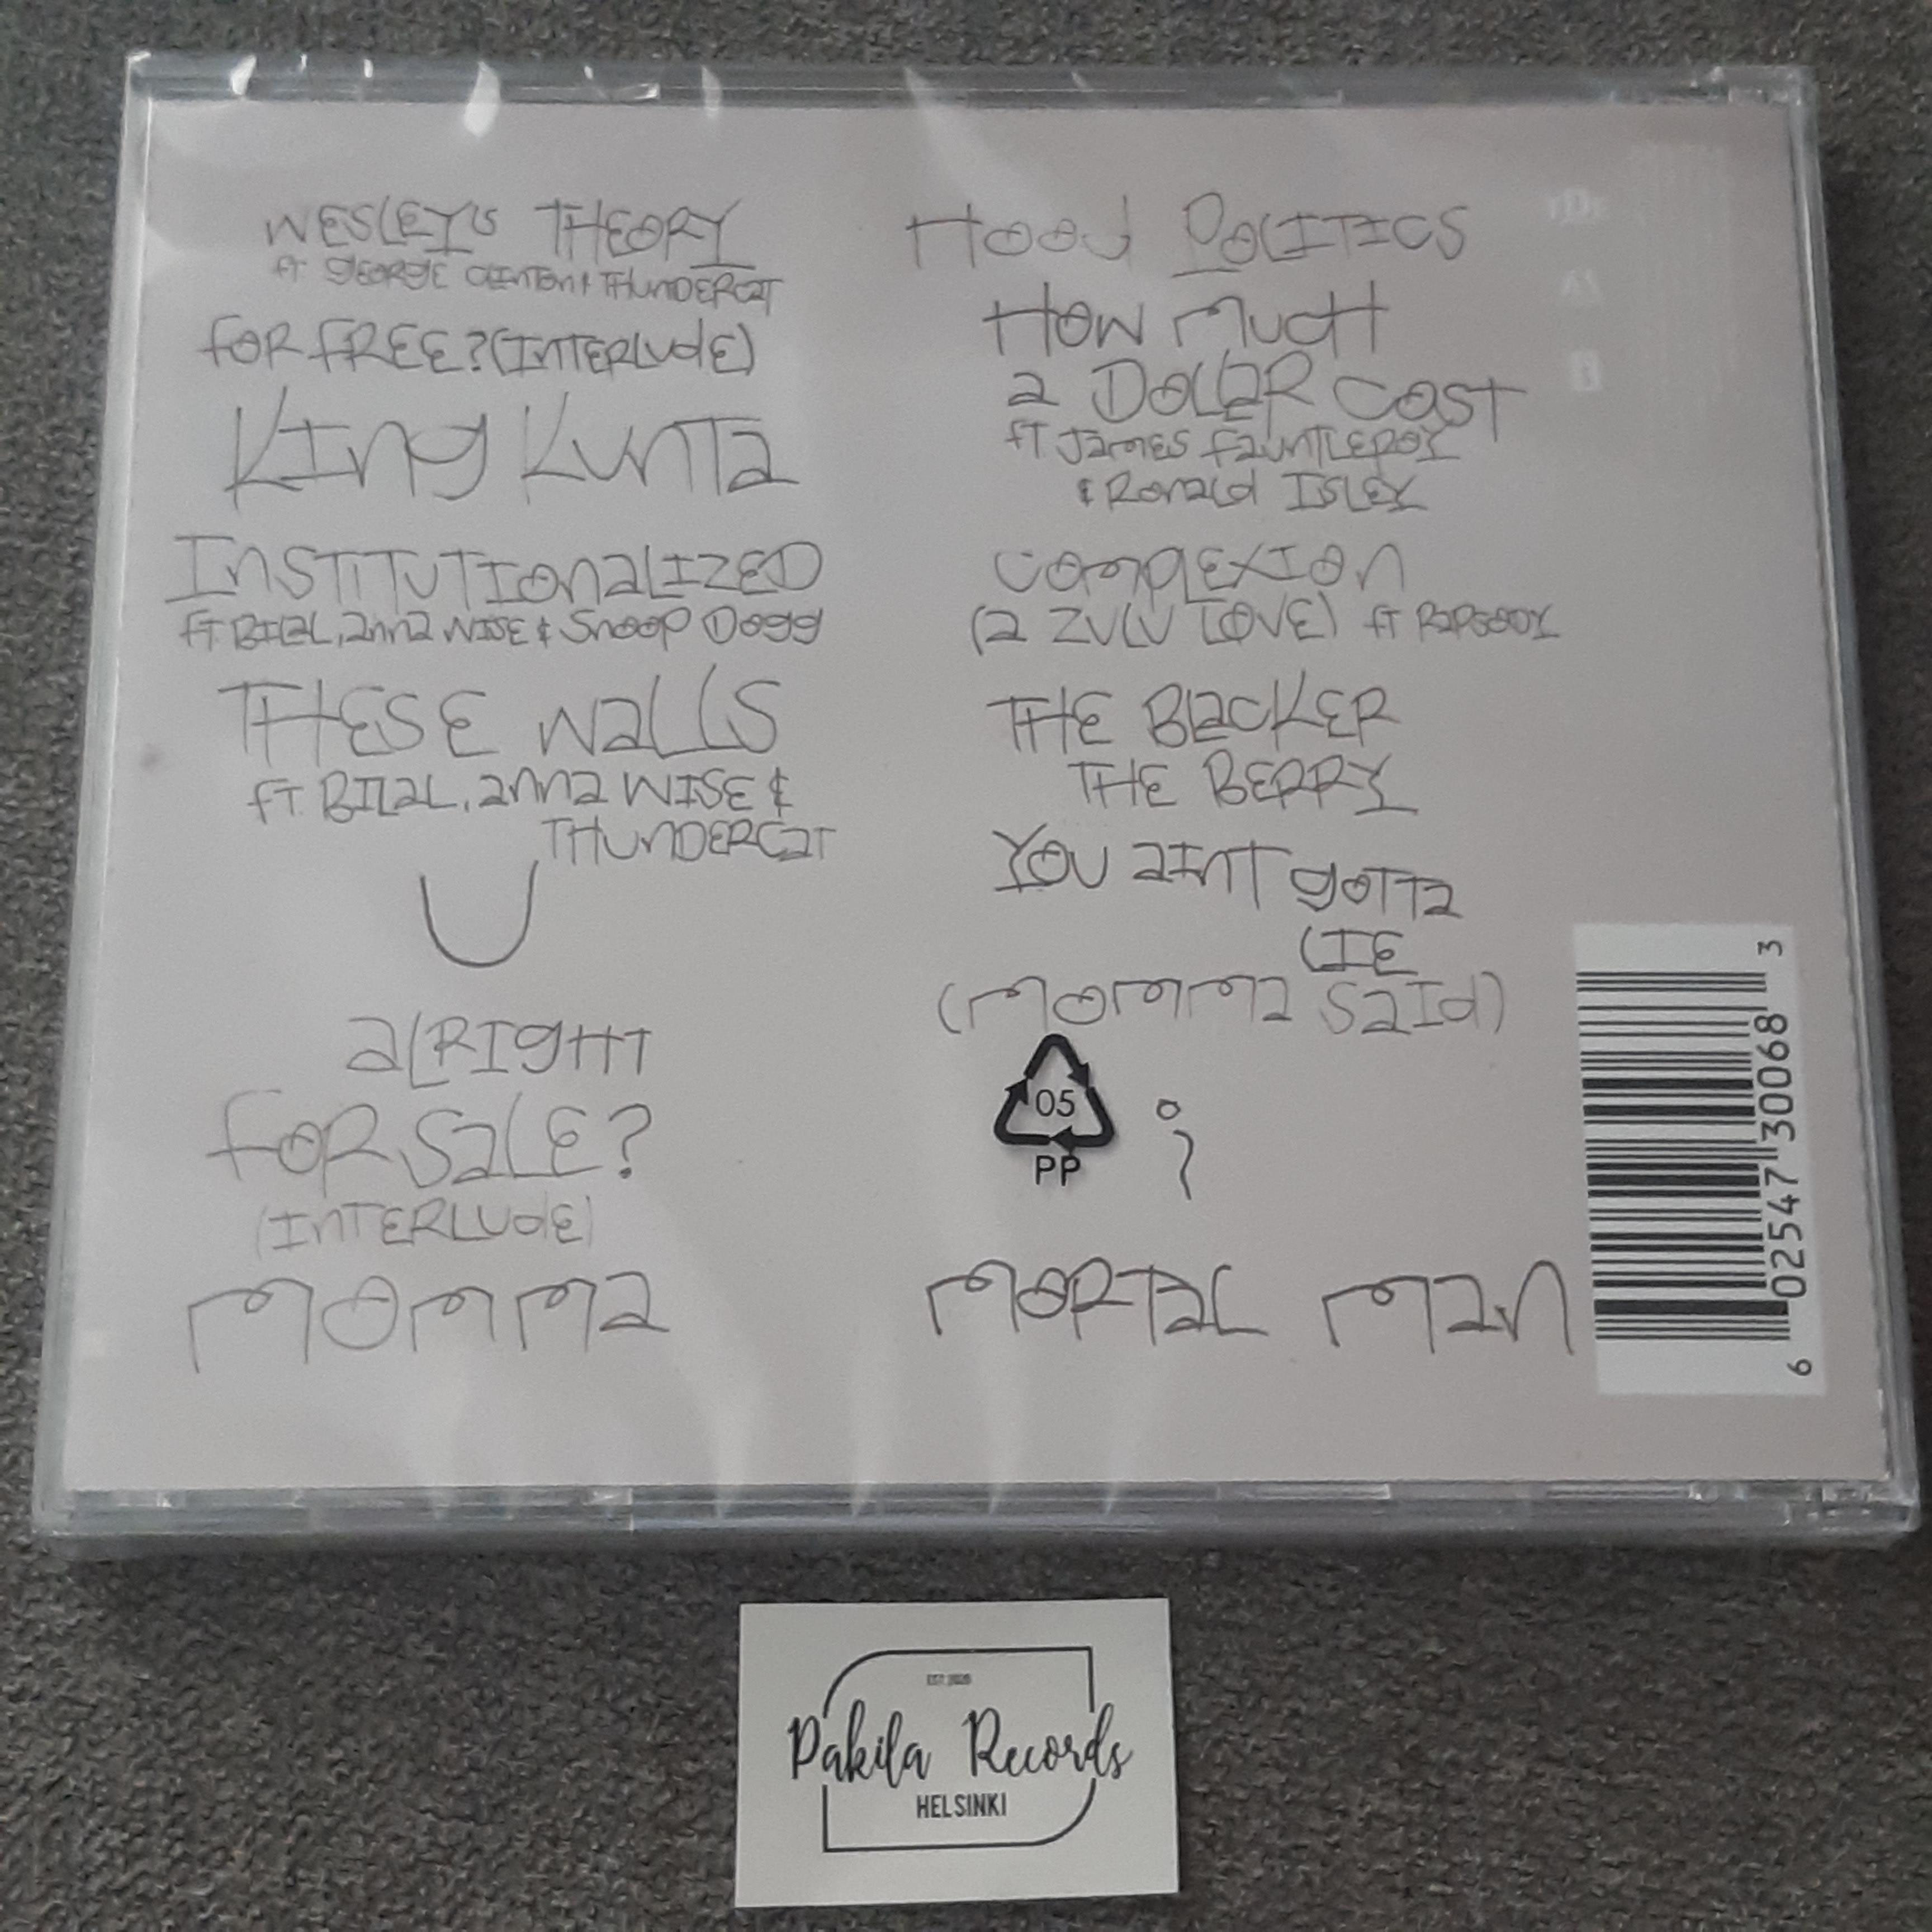 WESLEY'S THEORY
FT GEORGE CLINTON & THUNDERCAT
FOR FREE? (INTERLUDE)
KING KUNTA
INSTITUTIONALIZED
FT BILAL, ANNA WISE & SNOOP DOGG
THESE WALLS
FT. BILAL, ANNA WISE &
THUNDERCAT
U
ALRIGHT
FOR SALE?
(INTERLUDE)
MOMMA
HOOD POLITICS
HOW MUCH
A DOLLAR COST
FT JAMES FAUNTLEROY
& RONALD ISLEY
COMPLEXION
(A ZULU LOVE) FT RAPSODY
THE BLACKER
THE BERRY
YOU AINT GOTTA
LIE
(MOMMA SAID)
05
PP
i
MORTAL MAN
6 02547 30068 3
Pakila Records
HELSINKI